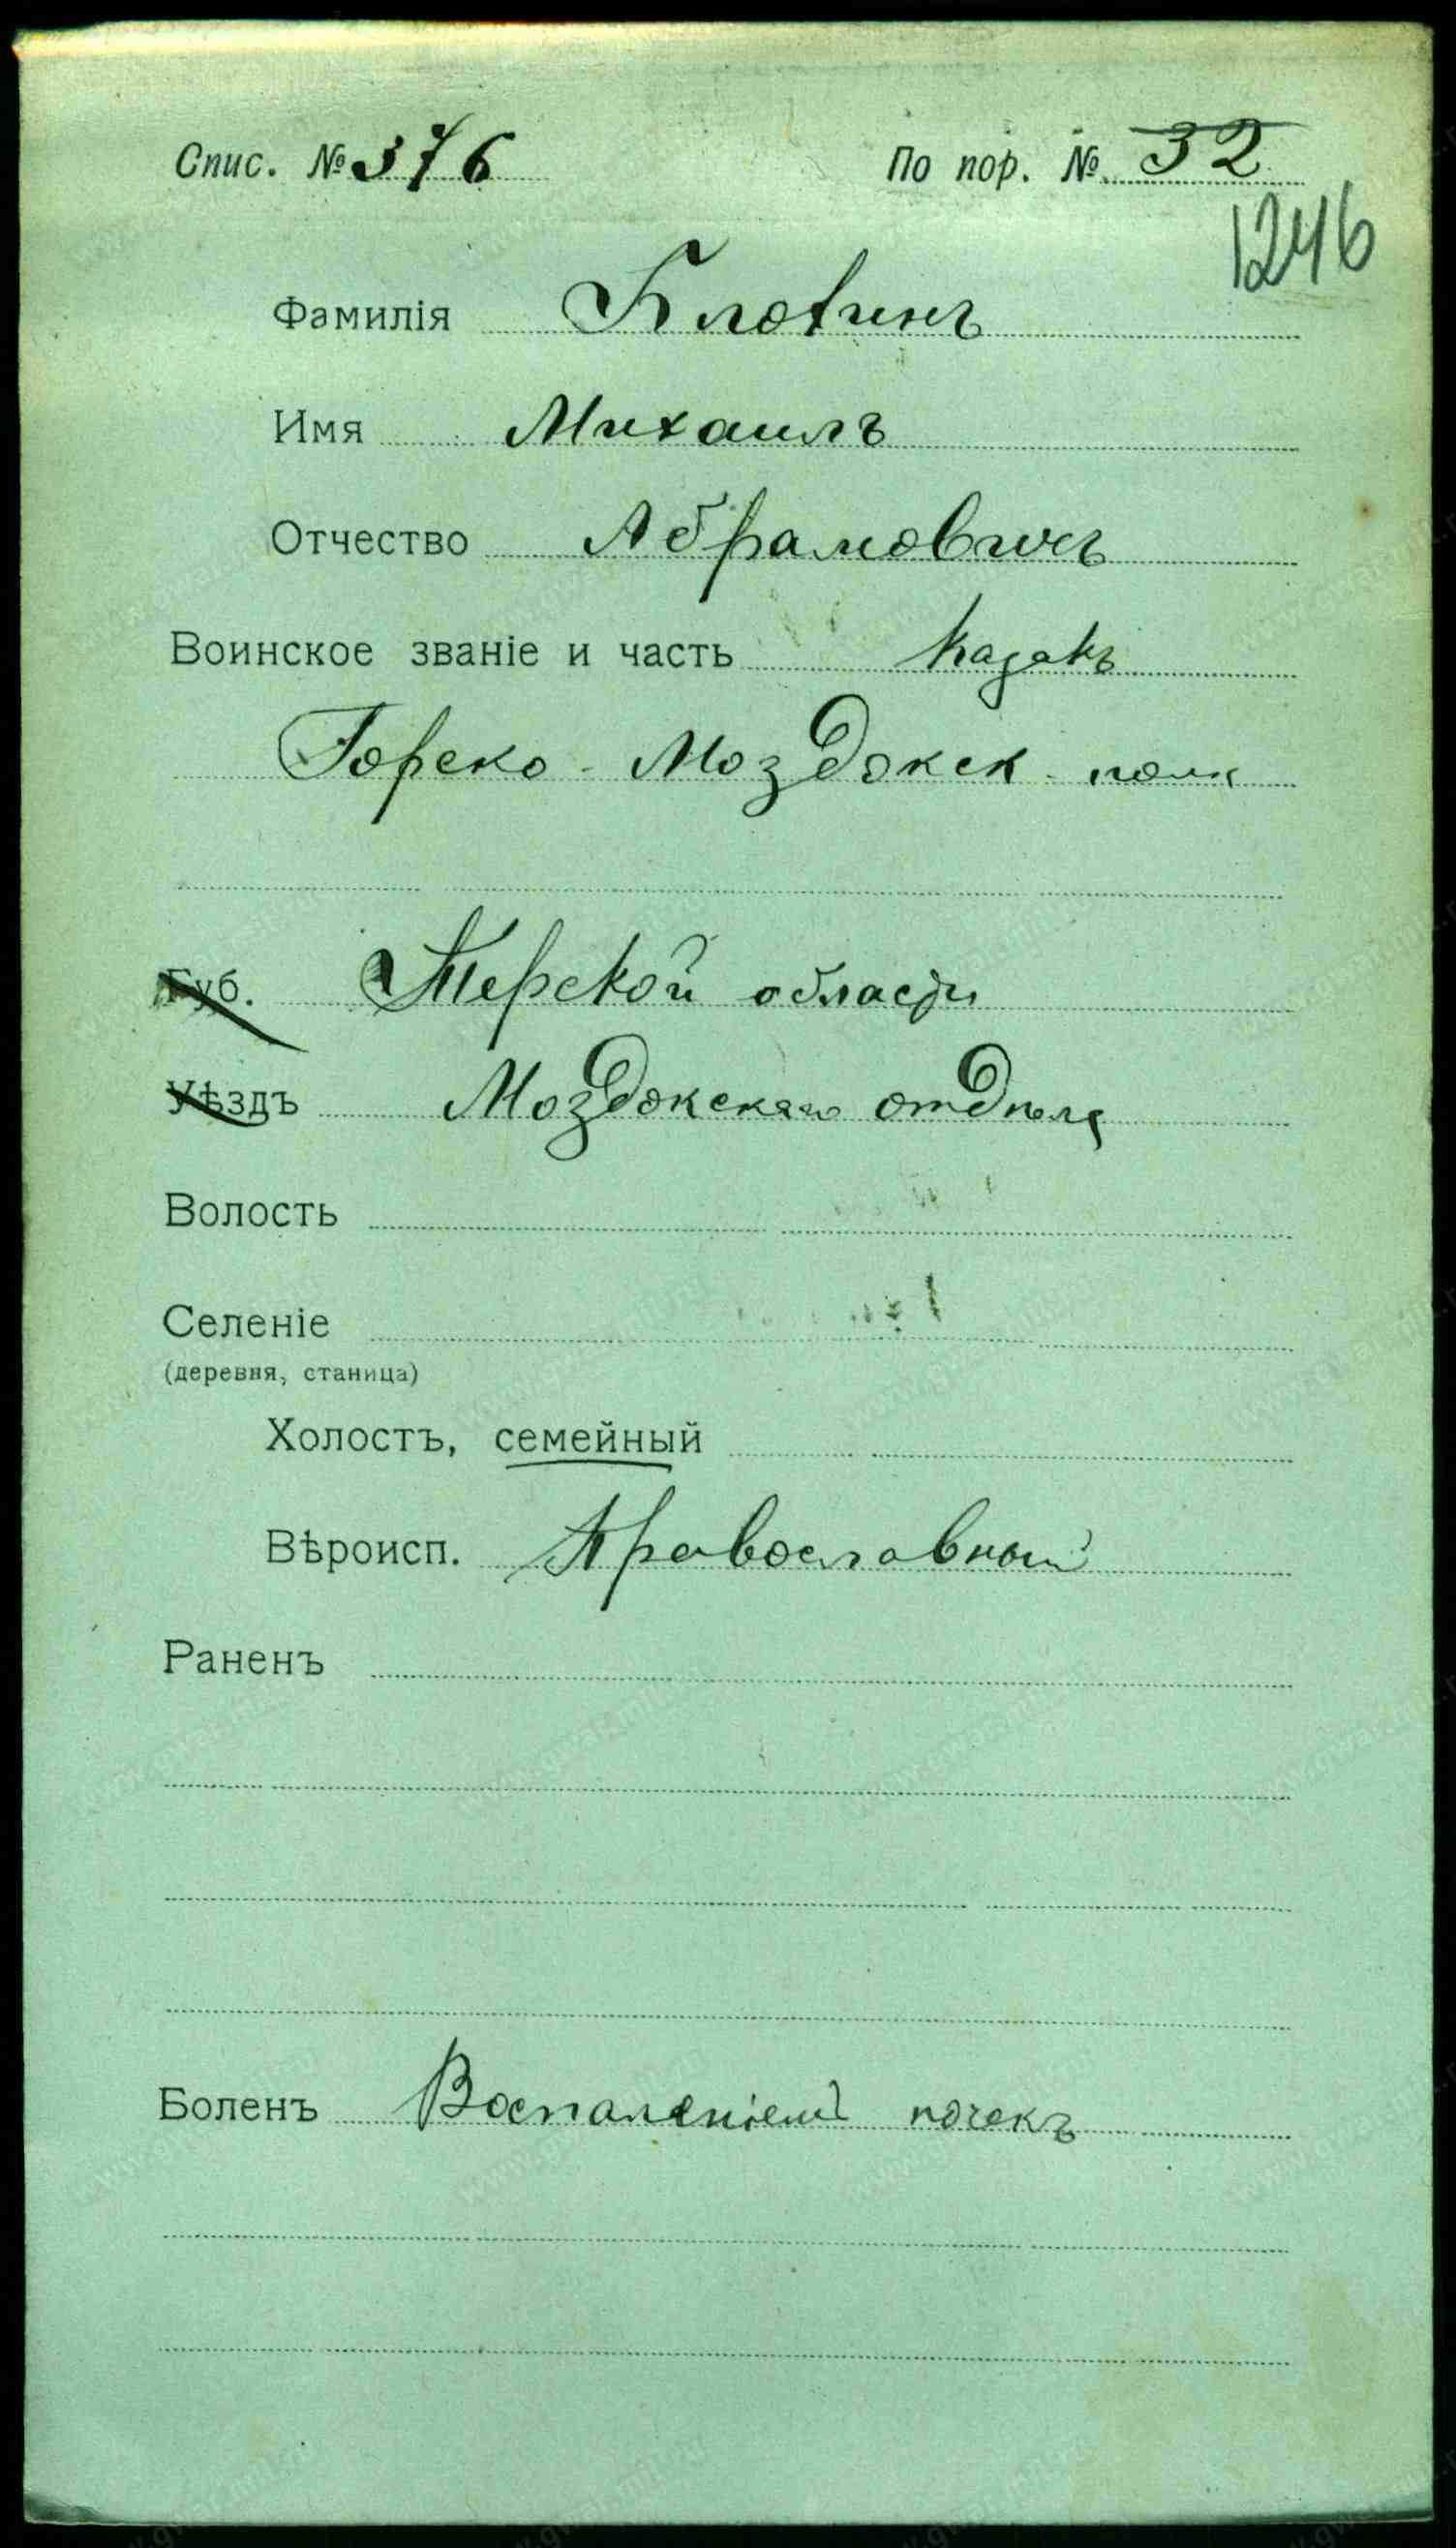 Спис. № 376 По пор. № 32
1246
Фамилія Блотинъ
Имя Михаилъ
Отчество Абрамовичъ
Воинское званіе и часть казакъ
Горско-Моздокск. полк
Губ. Терской области
Уѣздъ Моздокскаго отдѣла
Волость
Селеніе
(деревня, станица)
Холостъ, семейный
Вѣроисп. Православный
Раненъ
Боленъ Воспаленіемъ почекъ